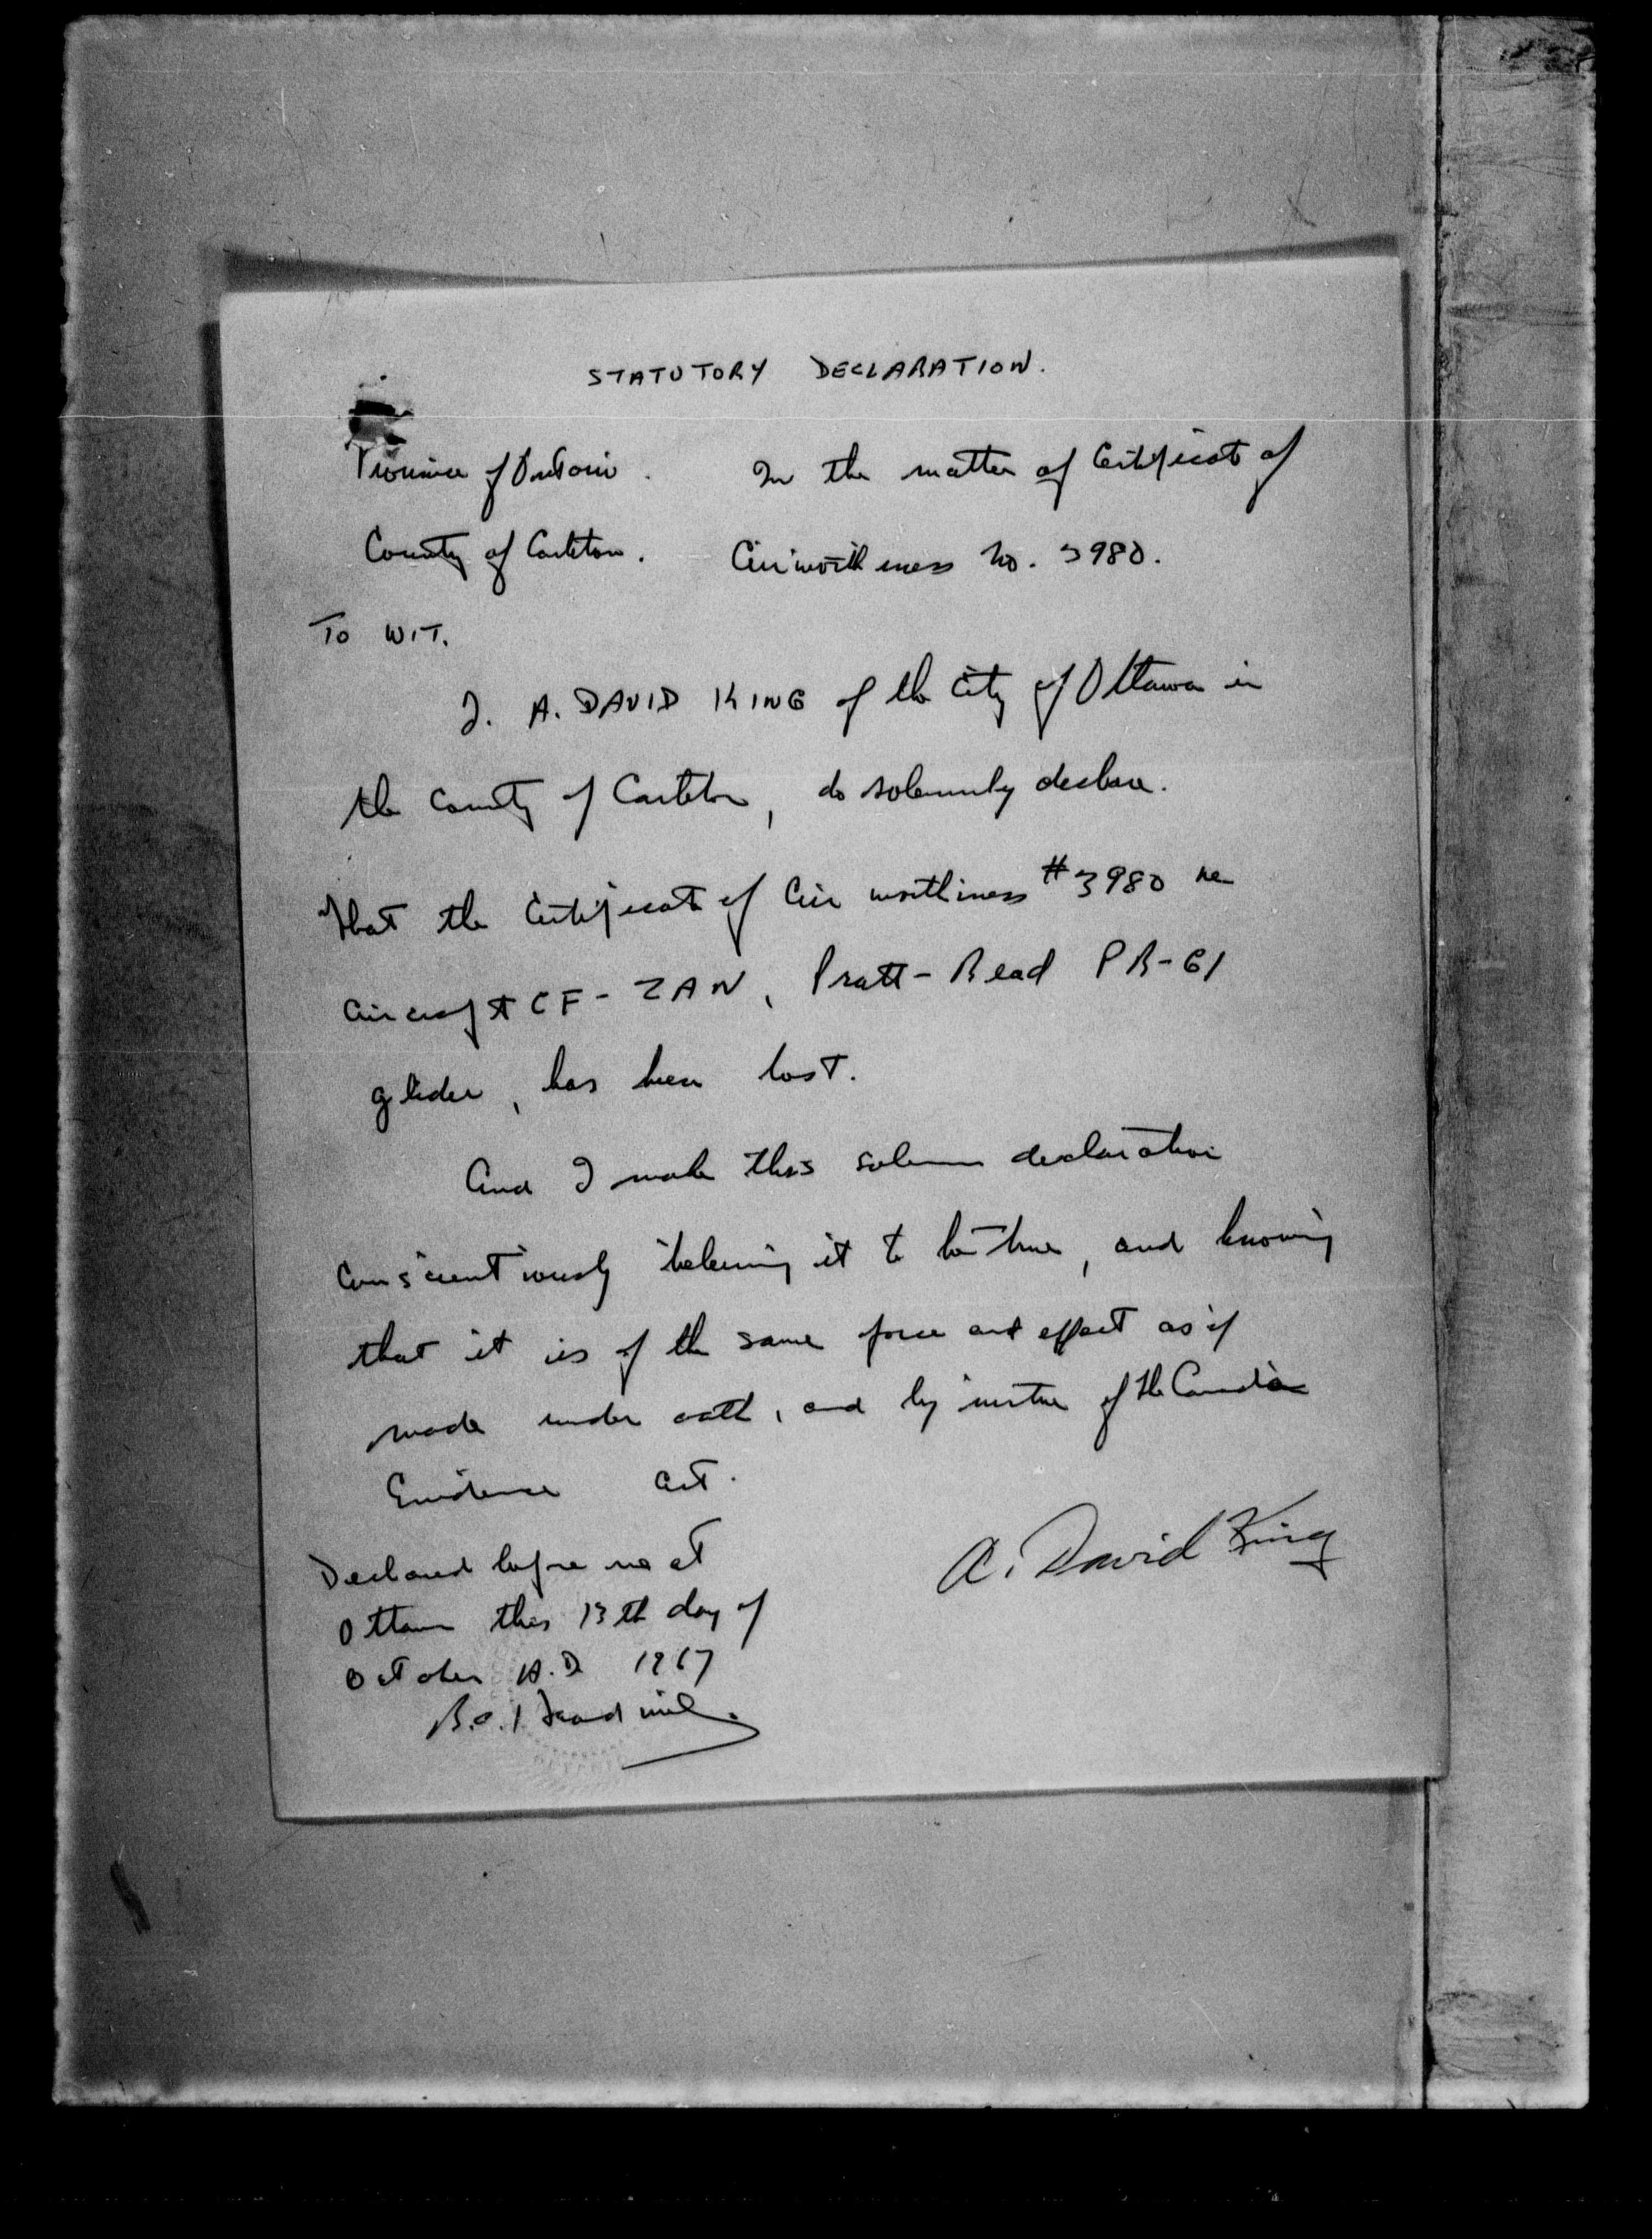 STATUTORY DECLARATION.
Province of Ontario. In the matter of Certificate of
County of Carleton. Airworthiness No. 3980.
TO WIT.
I. A. DAVID KING of the City of Ottawa in
the County of Carleton, do solemnly declare.
That the Certificate of Air worthiness #3980 re
Aircraft CF-ZAN, Pratt-Read PR-G1
glider, has been lost.
And I make this solemn declaration
conscientiously believing it to be true, and knowing
that it is of the same force and effect as if
made under oath, and by virtue of the Canada
Evidence Act.
A. David King
Declared before me at
Ottawa this 13th day of
October A.D 1967